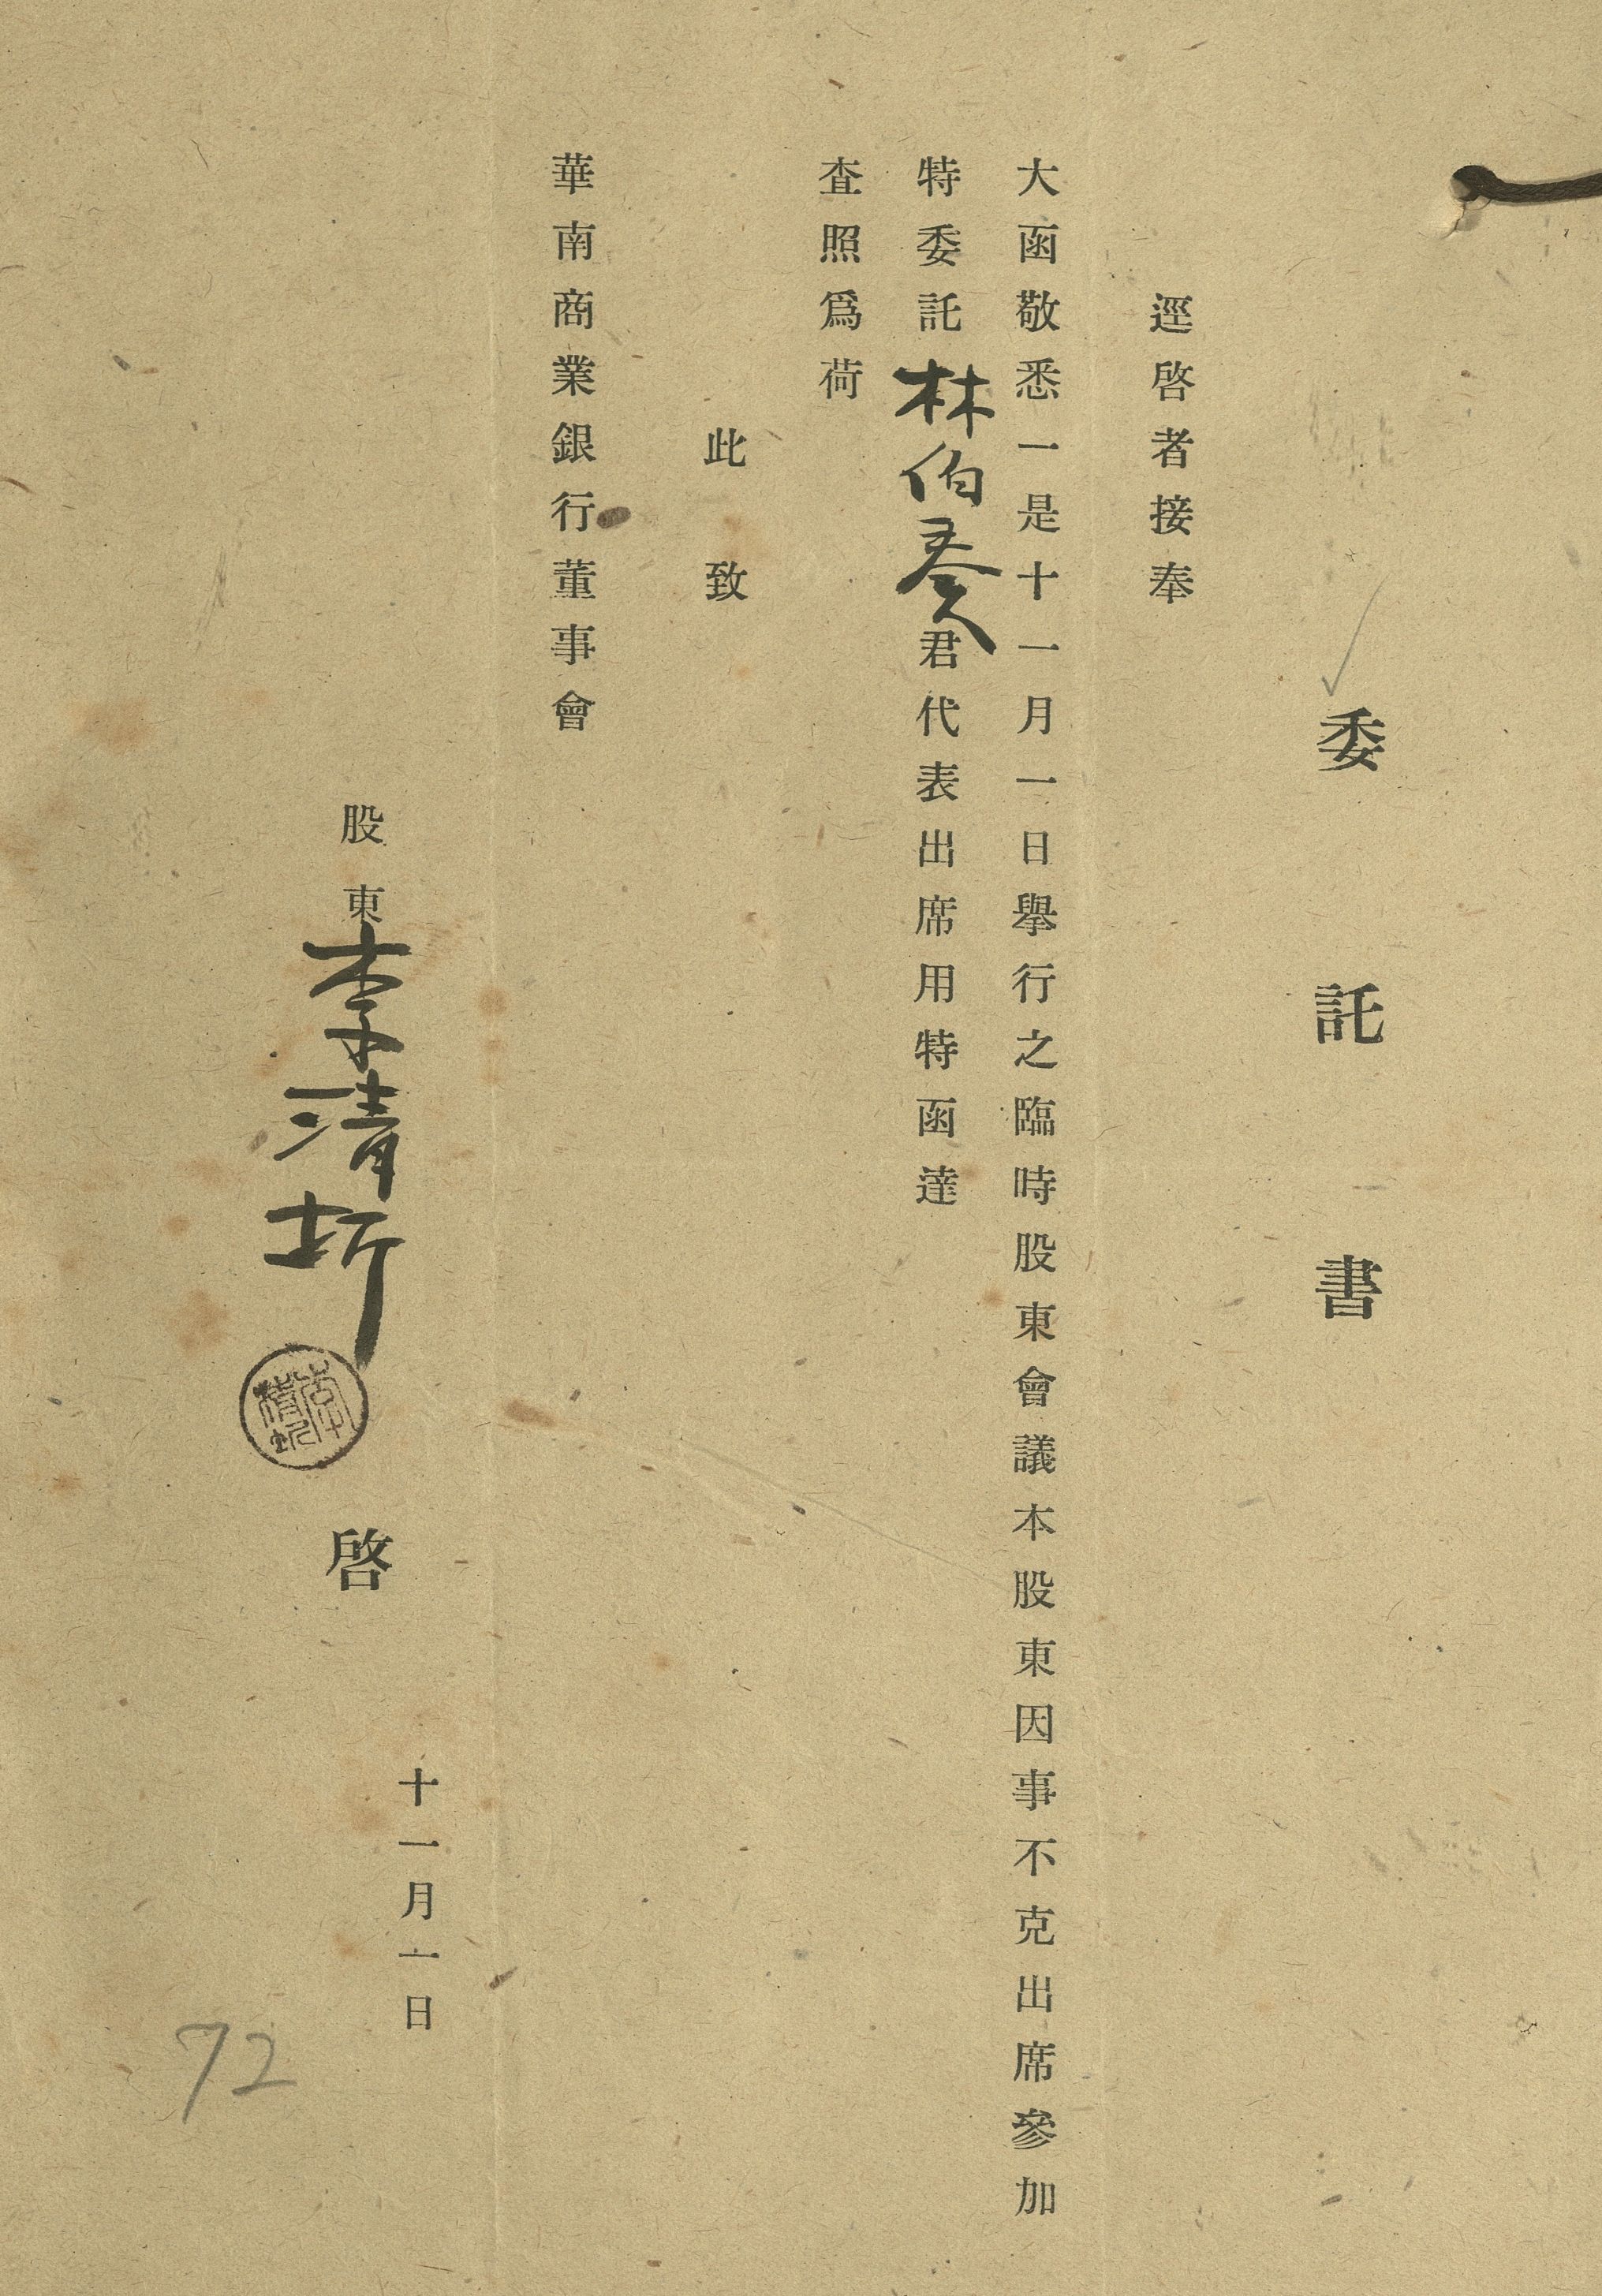 委託書
逕啓者接奉
大函敬悉一是十一月一日舉行之臨時股東會議本股東因事不克出席參加
特委託林伯奏君代表出席用特函達
査照爲荷
此致
華南商業銀行董事會
十一月一日
股東李清圻啓
72